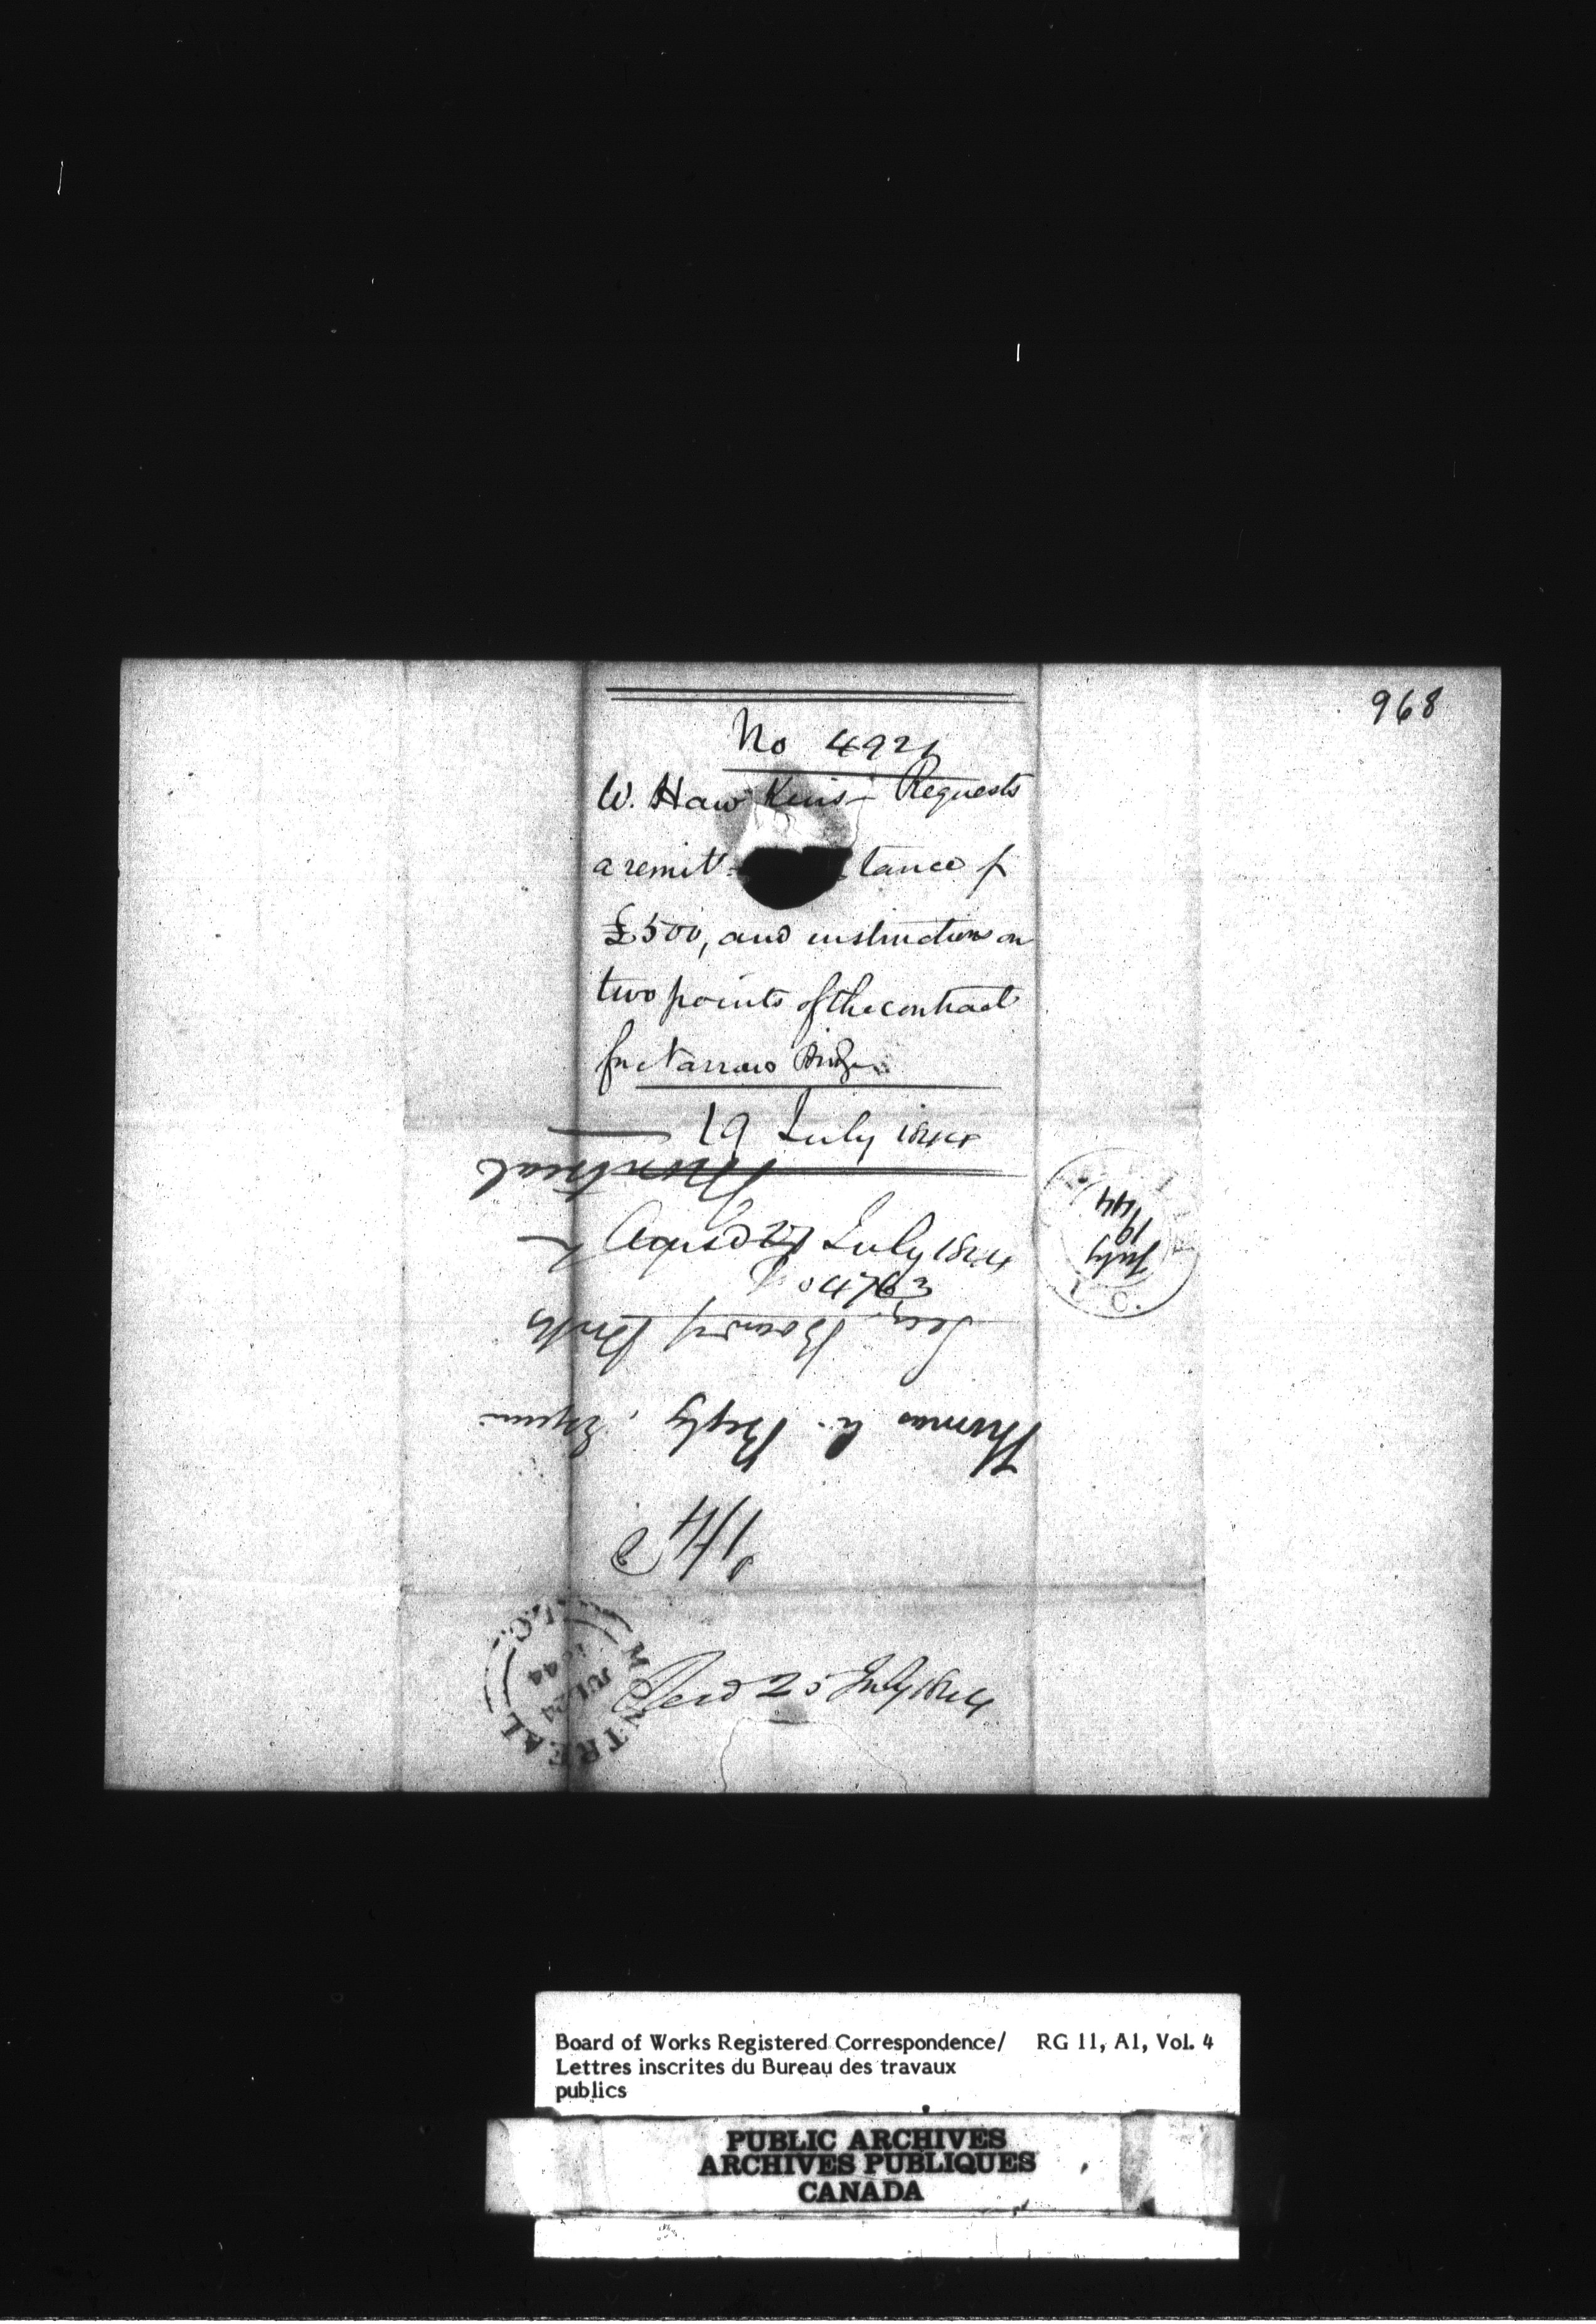 968
No 4926
W. Hawkins - Requests
a remit= tance of
£500, and instructions on
two points of the contract
for Narrows Bridge
19 July 1844
Montreal
Answd 27 July 1844
No 4763
Secy. Board of Works
Thomas A. Begly, Esquire
1/4
Recd 25 July 1844
July
19
44
C.
MONTREAL L.C.
JUL 24
1844
Board of Works Registered Correspondence/ RG 11, A1, Vol. 4
Lettres inscrites du Bureau des travaux
publics
PUBLIC ARCHIVES
ARCHIVES PUBLIQUES
CANADA